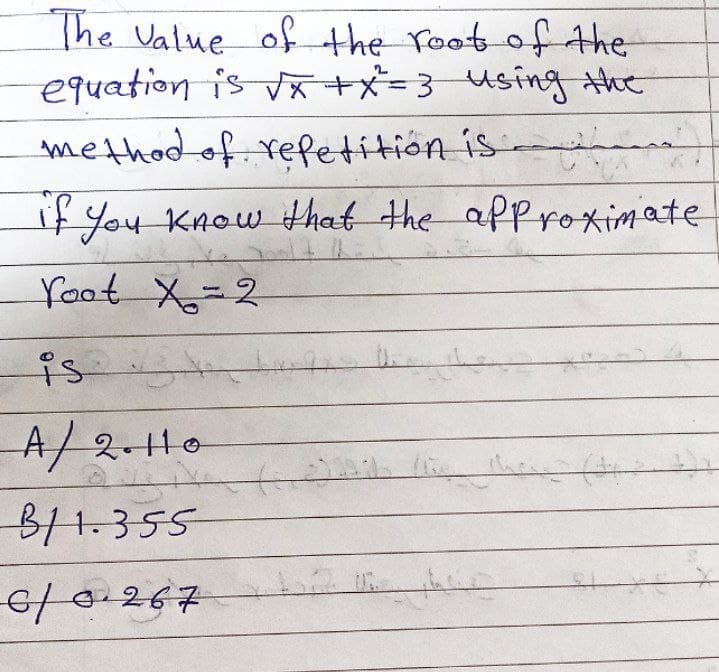 The Value of the root of the
equation is √x + x² = 3 using the
method of repetition is
if you know that the approximate
root X₀ = 2
is
A/ 2.110
B/ 1.355
C/ 0.267